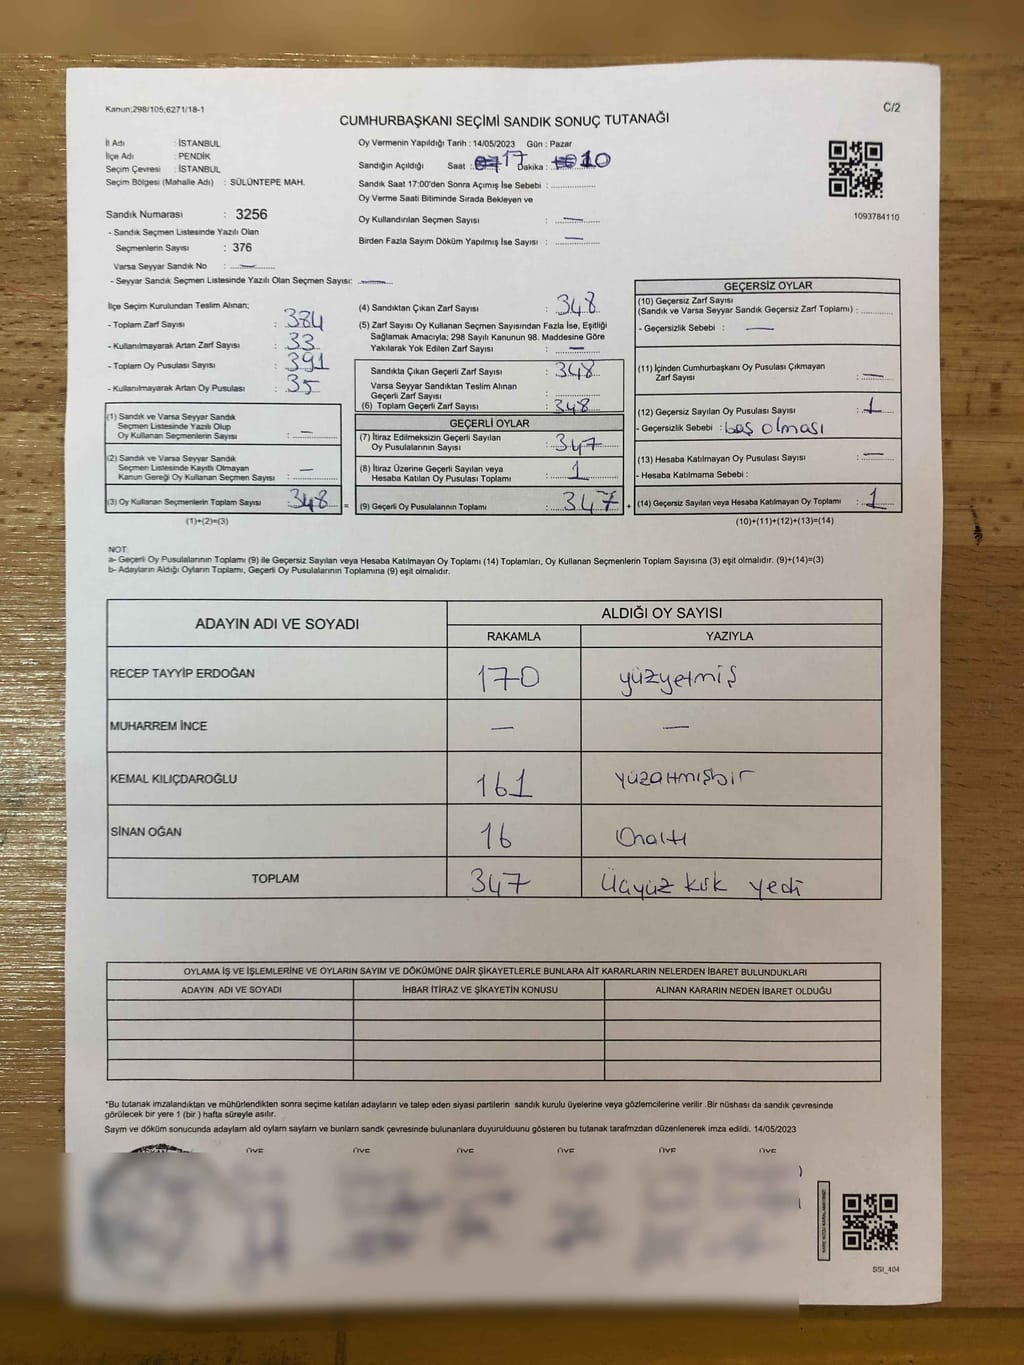 Kanun;298/105;6271/18-1
C/2
CUMHURBAŞKANI SEÇİMİ SANDIK SONUÇ TUTANAĞI
İl Adı : İSTANBUL
İlçe Adı : PENDİK
Seçim Çevresi : İSTANBUL
Seçim Bölgesi (Mahalle Adı) : SÜLÜNTEPE MAH.
Sandık Numarası : 3256
- Sandık Seçmen Listesinde Yazılı Olan
Seçmenlerin Sayısı : 376
Varsa Seyyar Sandık No : —
- Seyyar Sandık Seçmen Listesinde Yazılı Olan Seçmen Sayısı: —
Oy Vermenin Yapıldığı Tarih : 14/05/2023 Gün : Pazar
Sandığın Açıldığı Saat : 17 Dakika : 10
Sandık Saat 17:00'den Sonra Açımış İse Sebebi : ................
Oy Verme Saati Bitiminde Sırada Bekleyen ve
Oy Kullandırılan Seçmen Sayısı : —
Birden Fazla Sayım Döküm Yapılmış İse Sayısı : —
1093784110
İlçe Seçim Kurulundan Teslim Alınan;
- Toplam Zarf Sayısı : 384
- Kullanılmayarak Artan Zarf Sayısı : 33
- Toplam Oy Pusulası Sayısı : 391
- Kullanılmayarak Artan Oy Pusulası : 35
(1) Sandık ve Varsa Seyyar Sandık
Seçmen Listesinde Yazılı Olup
Oy Kullanan Seçmenlerin Sayısı : —
(2) Sandık ve Varsa Seyyar Sandık
Seçmen Listesinde Kayıtlı Olmayan
Kanun Gereği Oy Kullanan Seçmen Sayısı : —
(3) Oy Kullanan Seçmenlerin Toplam Sayısı : 348 =
(1)+(2)=(3)
(4) Sandıktan Çıkan Zarf Sayısı : 348
(5) Zarf Sayısı Oy Kullanan Seçmen Sayısından Fazla İse, Eşitliği
Sağlamak Amacıyla; 298 Sayılı Kanunun 98. Maddesine Göre
Yakılarak Yok Edilen Zarf Sayısı : —
Sandıkta Çıkan Geçerli Zarf Sayısı : 348
Varsa Seyyar Sandıktan Teslim Alınan
Geçerli Zarf Sayısı :
(6) Toplam Geçerli Zarf Sayısı : 348
GEÇERLİ OYLAR
(7) İtiraz Edilmeksizin Geçerli Sayılan
Oy Pusulalarının Sayısı : 347
(8) İtiraz Üzerine Geçerli Sayılan veya
Hesaba Katılan Oy Pusulası Toplamı : 1
(9) Geçerli Oy Pusulalarının Toplamı : 347 +
GEÇERSİZ OYLAR
(10) Geçersiz Zarf Sayısı
(Sandık ve Varsa Seyyar Sandık Geçersiz Zarf Toplamı) : ...........
- Geçersizlik Sebebi : —
(11) İçinden Cumhurbaşkanı Oy Pusulası Çıkmayan
Zarf Sayısı : —
(12) Geçersiz Sayılan Oy Pusulası Sayısı : 1
- Geçersizlik Sebebi : boş olması
(13) Hesaba Katılmayan Oy Pusulası Sayısı : —
- Hesaba Katılmama Sebebi :
(14) Geçersiz Sayılan veya Hesaba Katılmayan Oy Toplamı : 1
(10)+(11)+(12)+(13)=(14)
NOT:
a- Geçerli Oy Pusulalarının Toplamı (9) ile Geçersiz Sayılan veya Hesaba Katılmayan Oy Toplamı (14) Toplamları, Oy Kullanan Seçmenlerin Toplam Sayısına (3) eşit olmalıdır. (9)+(14)=(3)
b- Adayların Aldığı Oyların Toplamı, Geçerli Oy Pusulalarının Toplamına (9) eşit olmalıdır.
ADAYIN ADI VE SOYADI ALDIĞI OY SAYISI
RAKAMLA YAZIYLA
RECEP TAYYİP ERDOĞAN 170 yüzyetmiş
MUHARREM İNCE — —
KEMAL KILIÇDAROĞLU 161 yüzaltmışbir
SİNAN OĞAN 16 Onaltı
TOPLAM 347 Üçyüz kırk yedi
OYLAMA İŞ VE İŞLEMLERİNE VE OYLARIN SAYIM VE DÖKÜMÜNE DAİR ŞİKAYETLERLE BUNLARA AİT KARARLARIN NELERDEN İBARET BULUNDUKLARI
ADAYIN ADI VE SOYADI İHBAR İTİRAZ VE ŞİKAYETİN KONUSU ALINAN KARARIN NEDEN İBARET OLDUĞU
*Bu tutanak imzalandıktan ve mühürlendikten sonra seçime katılan adayların ve talep eden siyasi partilerin sandık kurulu üyelerine veya gözlemcilerine verilir .Bir nüshası da sandık çevresinde
görülecek bir yere 1 (bir ) hafta süreyle asılır.
Sayım ve döküm sonucunda adaylam ald oylam saylam ve bunlarn sandk çevresinde bulunanlara duyurulduunu gösteren bu tutanak tarafmzdan düzenlenerek imza edildi. 14/05/2023
ÜYE ÜYE ÜYE ÜYE ÜYE ÜYE
SSI_404